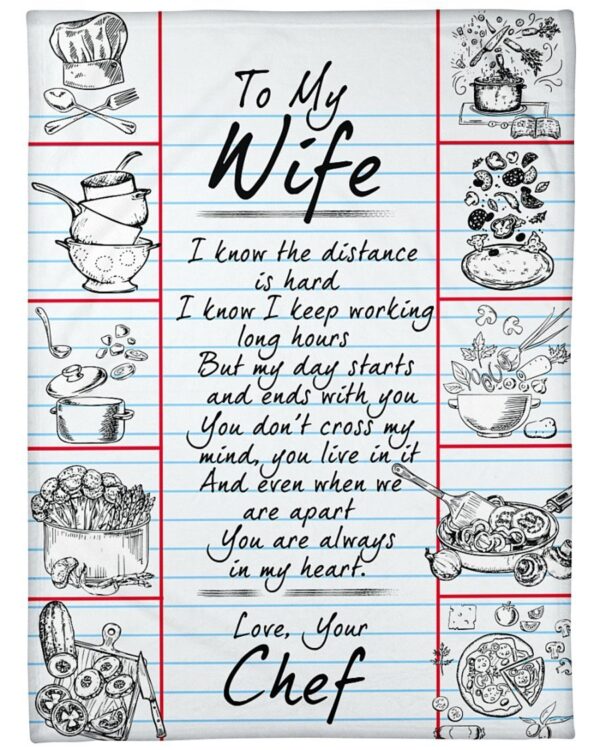 To My
Wife
I know the distance
is hard
I know I keep working
long hours
But my day starts
and ends with you
You don't cross my
mind, you live in it
And even when we
are apart
You are always
in my heart.
Love, Your
Chef